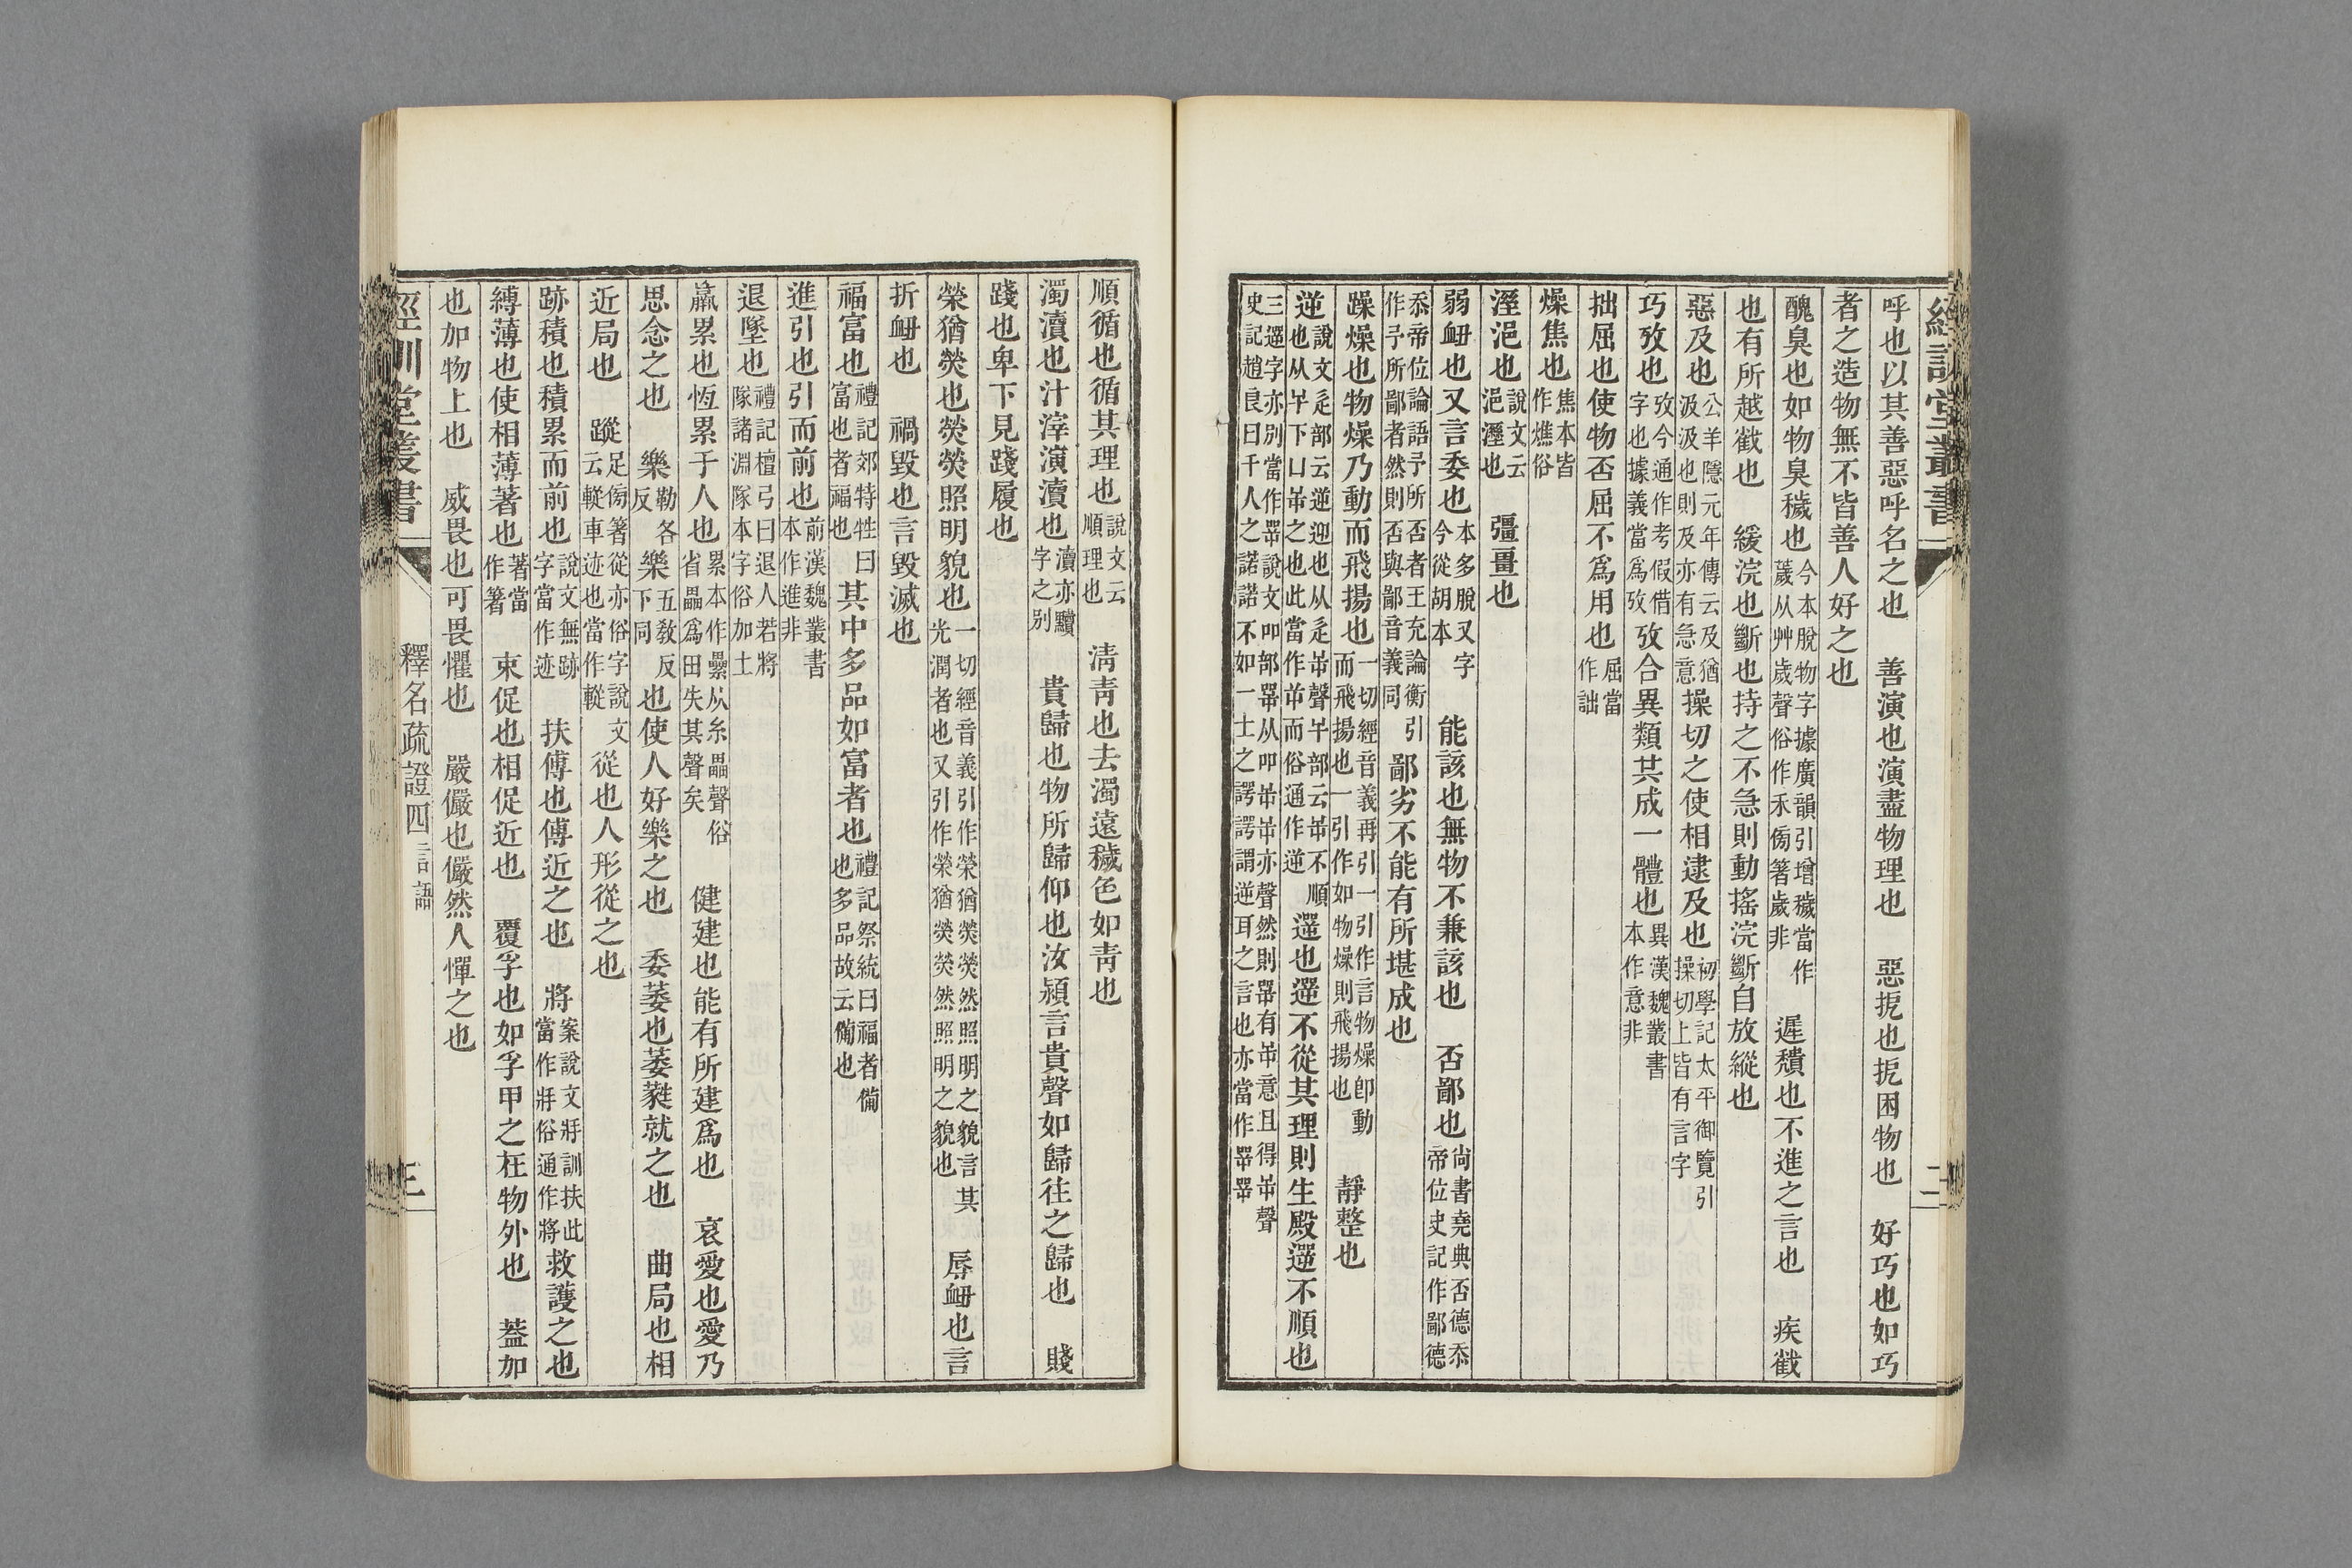 經訓堂叢書
二
呼也以其善惡呼名之也 善演也演盡物理也 惡扼也扼困物也 好巧也如巧
者之造物無不皆善人好之也
醜臭也如物臭穢也今本脫物字據廣韻引增穢當作薉从艸歲聲俗作禾傍箸歲非 遲穨也不進之言也 疾截
也有所越截也 緩浣也斷也持之不急則動搖浣斷自放縱也
惡及也公羊隱元年傳云及猶汲汲也則及亦有急意操切之使相逮及也初學記太平御覽引操切上皆有言字
巧攷也攷今通作考假借字也據義當爲攷攷合異類共成一體也異漢魏叢書本作意非
拙屈也使物否屈不爲用也屈當作詘
燥焦也焦本皆作燋俗
溼浥也說文云浥溼也 彊畺也
弱衄也又言委也本多脫又字今從胡本 能該也無物不兼該也 否鄙也尚書堯典否德忝帝位史記作鄙德
忝帝位論語予所否者王充論衡引作予所鄙者然則否與鄙音義同鄙劣不能有所堪成也
躁燥也物燥乃動而飛揚也一切經音義再引一引作言物燥卽動而飛揚也一引作如物燥則飛揚也 靜整也
逆說文辵部云逆迎也从辵屰聲屰部云屰不順也从干下凵屰之也此當作屰而俗通作逆遻也遻不從其理則生殿遻不順也
三遻字亦別當作㖾說文吅部㖾从吅屰屰亦聲然則㖾有屰意且得屰聲史記趙良曰千人之諾諾不如一士之諤諤謂逆耳之言也亦當作㖾㖾
順循也循其理也說文云順理也 淸靑也去濁遠穢色如靑也
濁瀆也汁滓演瀆也瀆亦黷字之別 貴歸也物所歸仰也汝潁言貴聲如歸往之歸也 賤
踐也卑下見踐履也
榮猶熒也熒熒照明貌也一切經音義引作榮猶熒熒然照明之貌言其光潤者也又引作榮猶熒熒然照明之貌也 辱衄也言
折衄也 禍毀也言毀滅也
福富也禮記郊特牲曰富也者福也其中多品如富者也禮記祭統曰福者備也多品故云備也
進引也引而前也前漢魏叢書本作進非
退墜也禮記檀弓曰退人若將隊諸淵隊本字俗加土
羸累也恆累于人也累本作纍从糸畾聲俗省畾爲田失其聲矣 健建也能有所建爲也 哀愛也愛乃
思念之也 樂勒各反樂五敎反下同也使人好樂之也 委萎也萎蕤就之也 曲局也相
近局也 蹤足傍著從亦俗字說文云䡮車迹也當作䡮從也人形從之也
跡積也積累而前也說文無跡字當作迹 扶傅也傅近之也 將案說文㢡訓扶此當作㢡俗通作將救護之也
縛薄也使相薄著也著當作箸 束促也相促近也 覆孚也如孚甲之在物外也 葢加
也加物上也 威畏也可畏懼也 嚴儼也儼然人憚之也
經訓堂叢書
釋名疏證四 言語
三